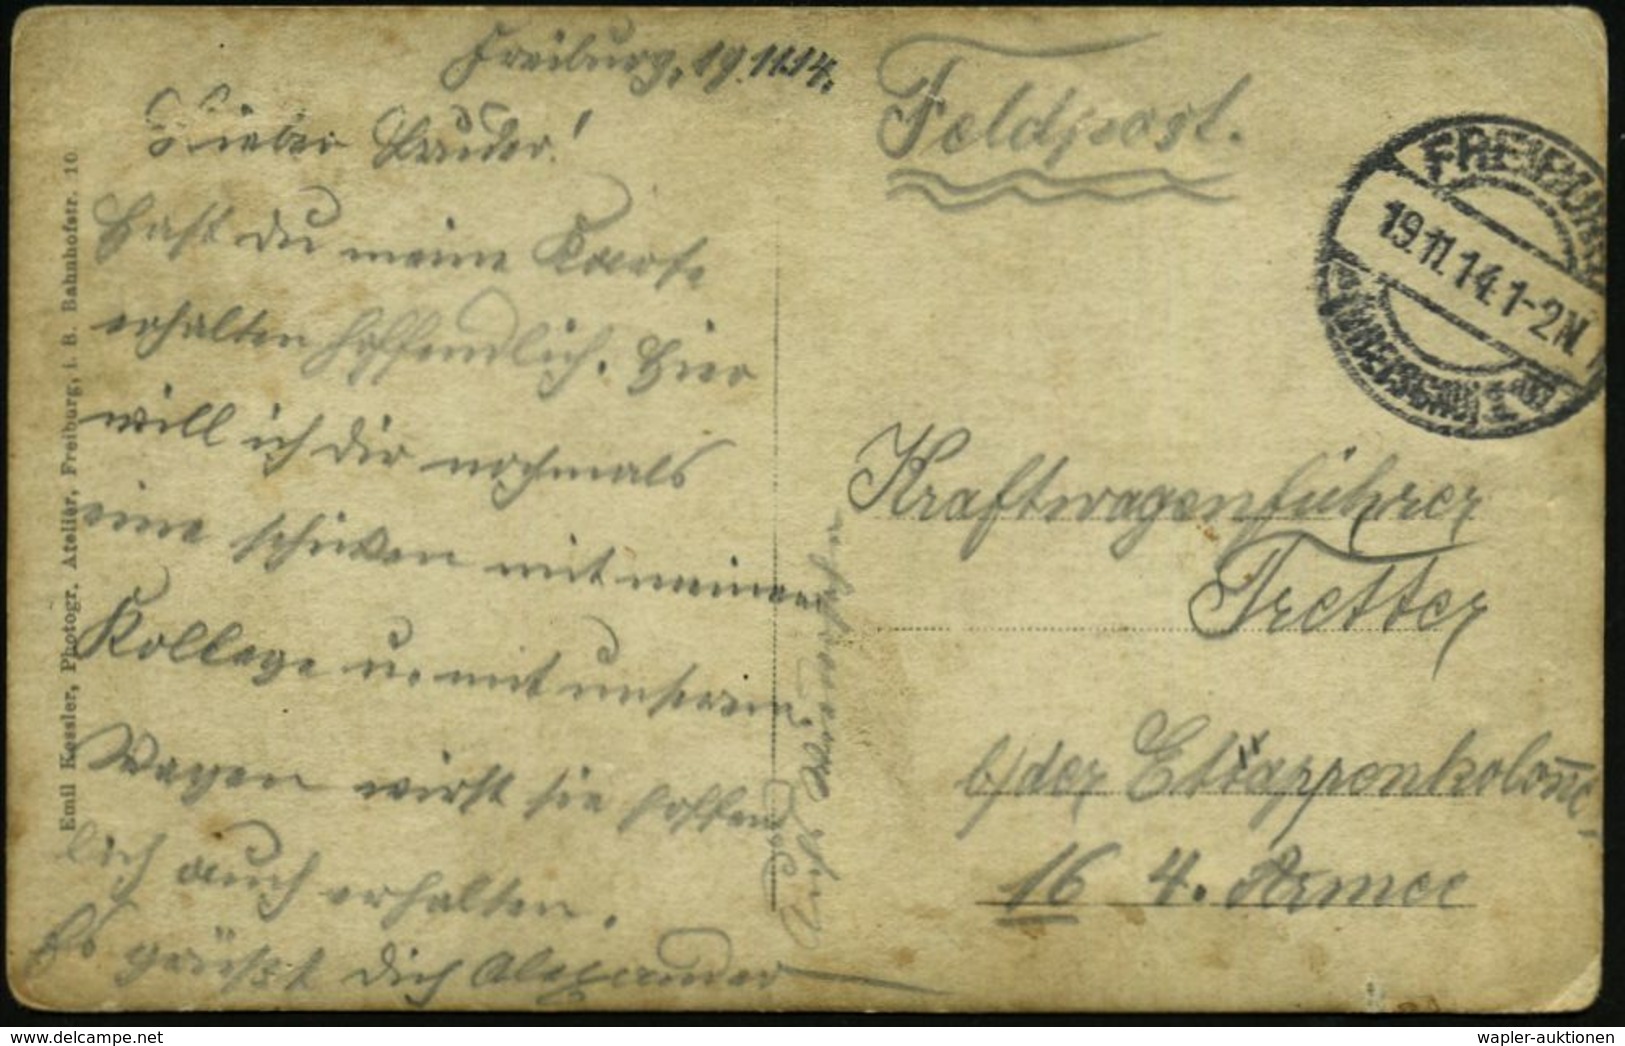 Freiburg, 19.11.14.
Lieber Bruder!
Hast du meine Karte
erhalten hoffendlich. Hier
will ich dir nochmals
eine schicken mit meinem
Kollege u. mit unserem
Wagen wirst sie hoffend
lich auch erhalten.
Es grüßt dich Alexander
Auf Wiedersehn
Emil Kessler, Photogr. Atelier, Freiburg, i. B. Bahnhofstr. 10
Feldpost.
FREIBURG
19.11.14. 1-2N.
Kraftwagenführer
Tretter
b/der Ettappenkolonne
16 4. Armee
wapler-auktionen